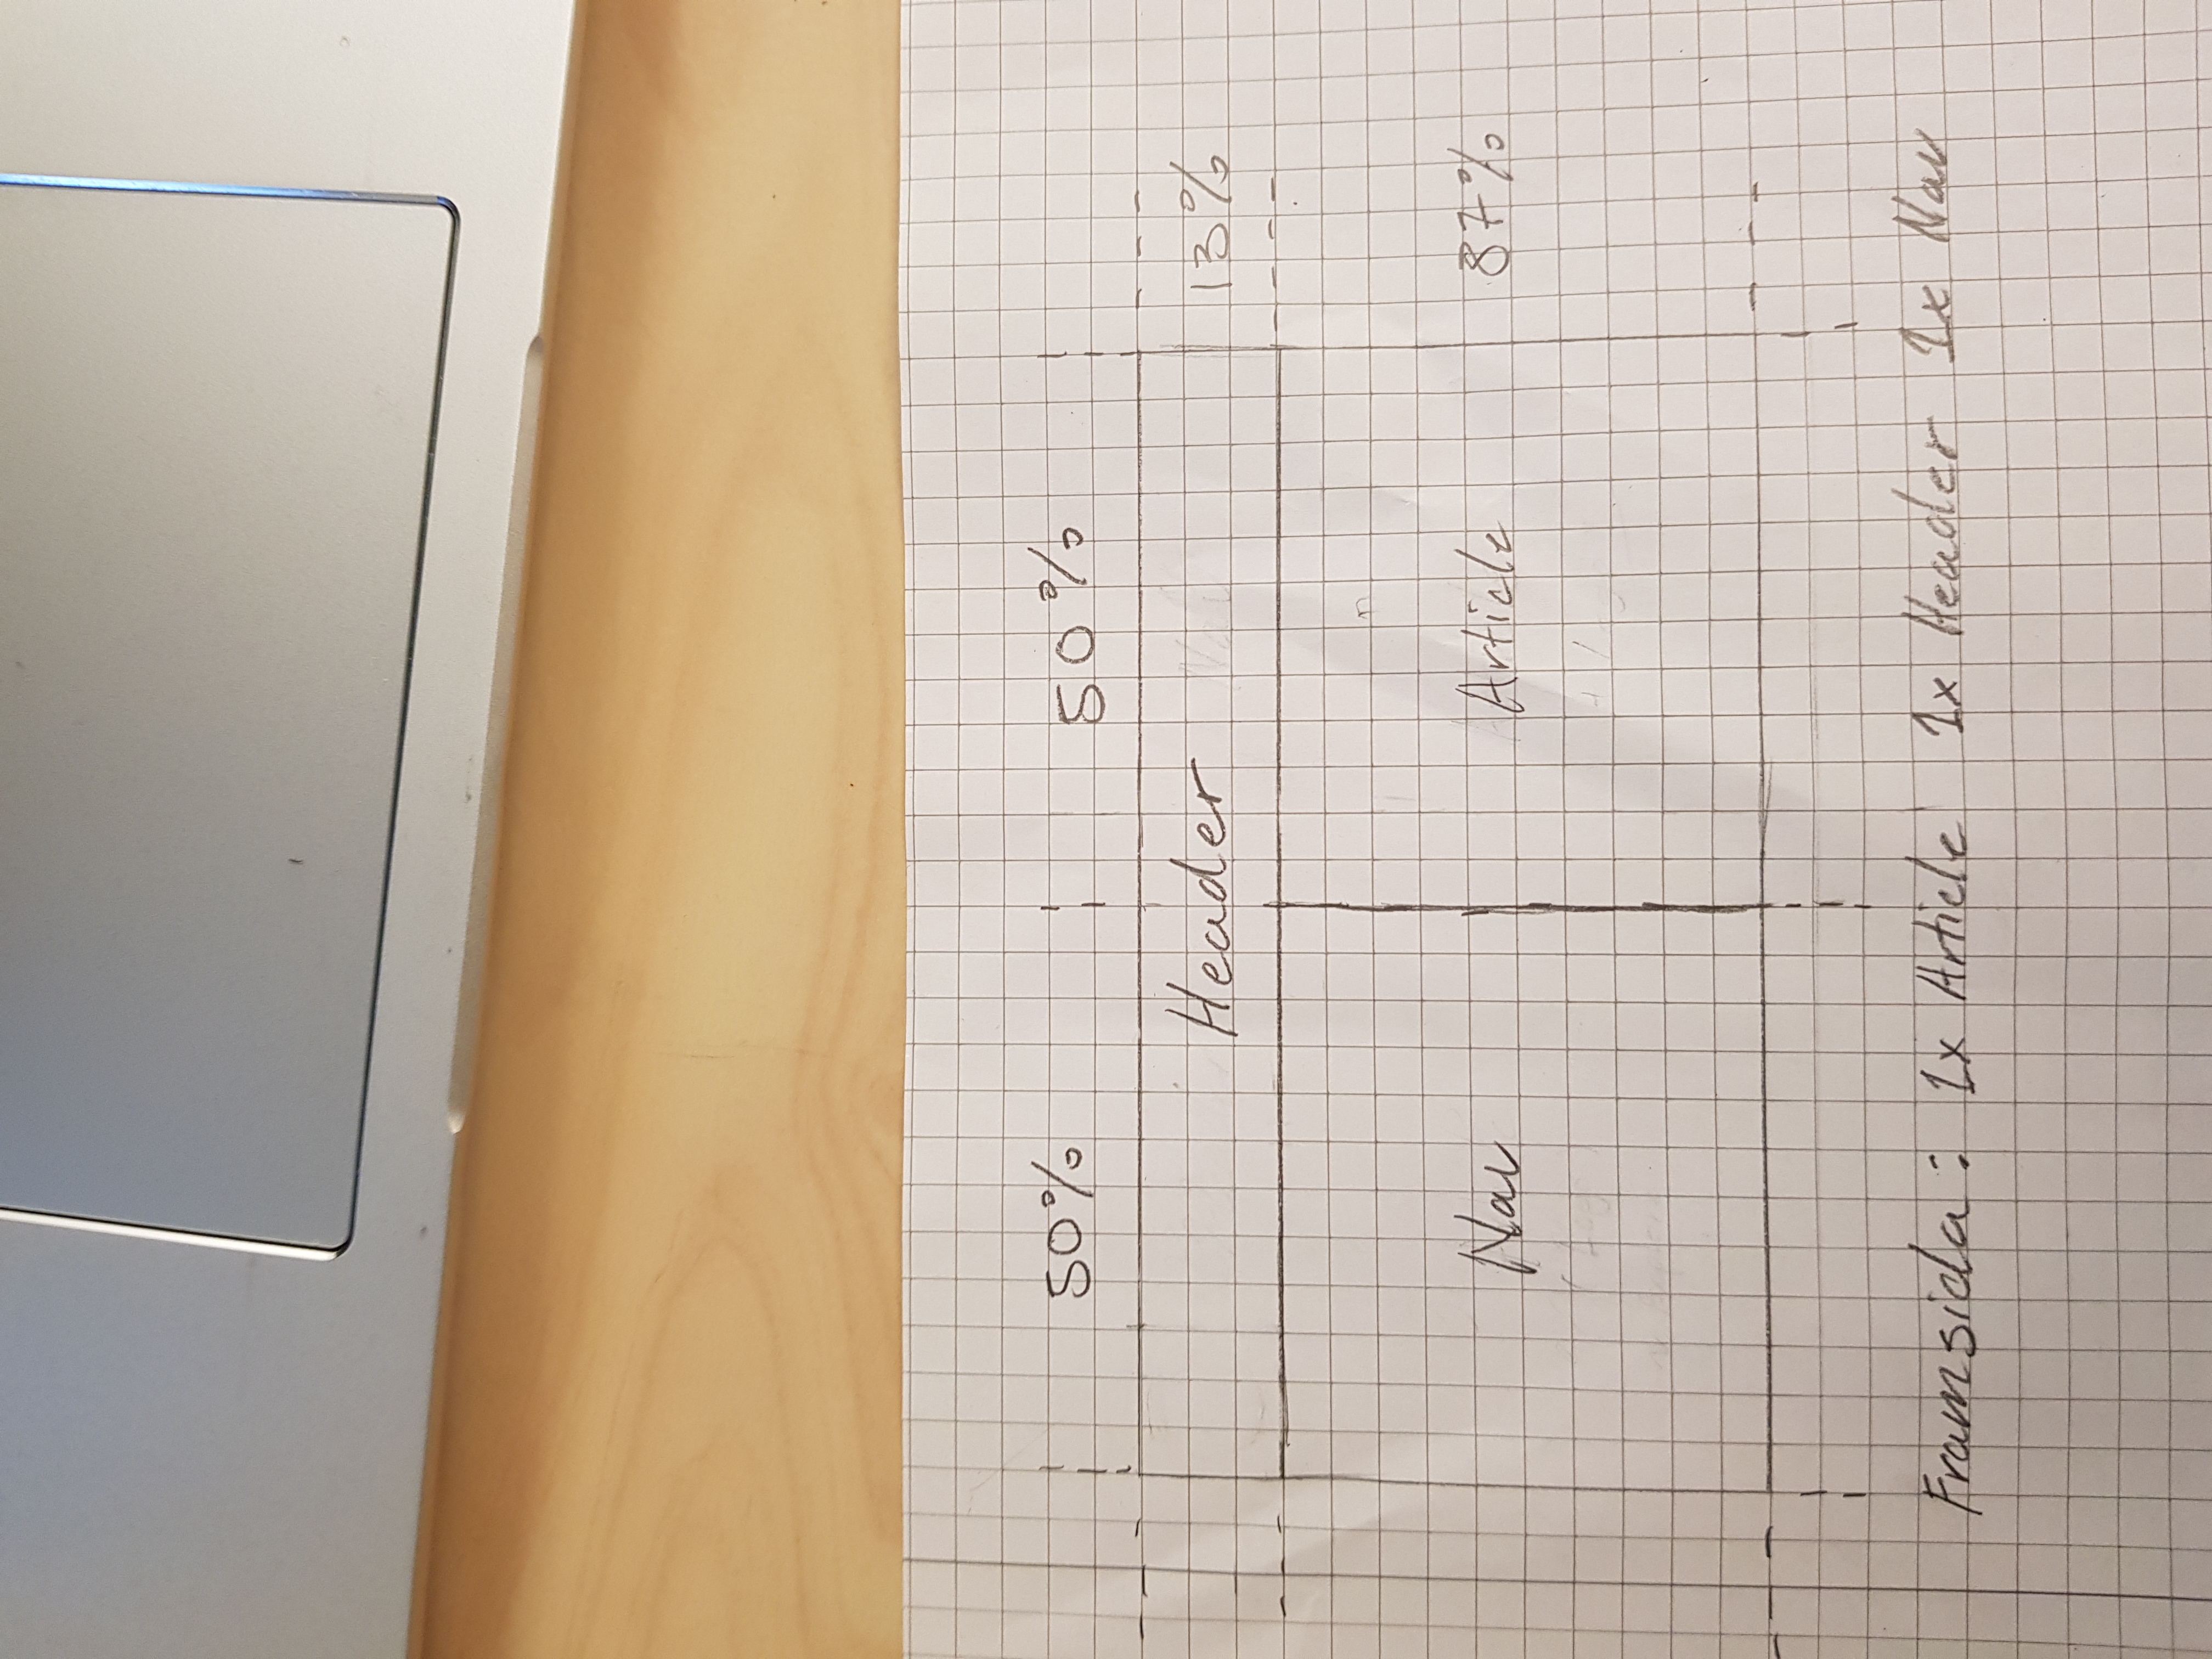 50% 50%
Header 13%
Nav Article 87%
Framsida: 1x Article 1x Header 1x Nav